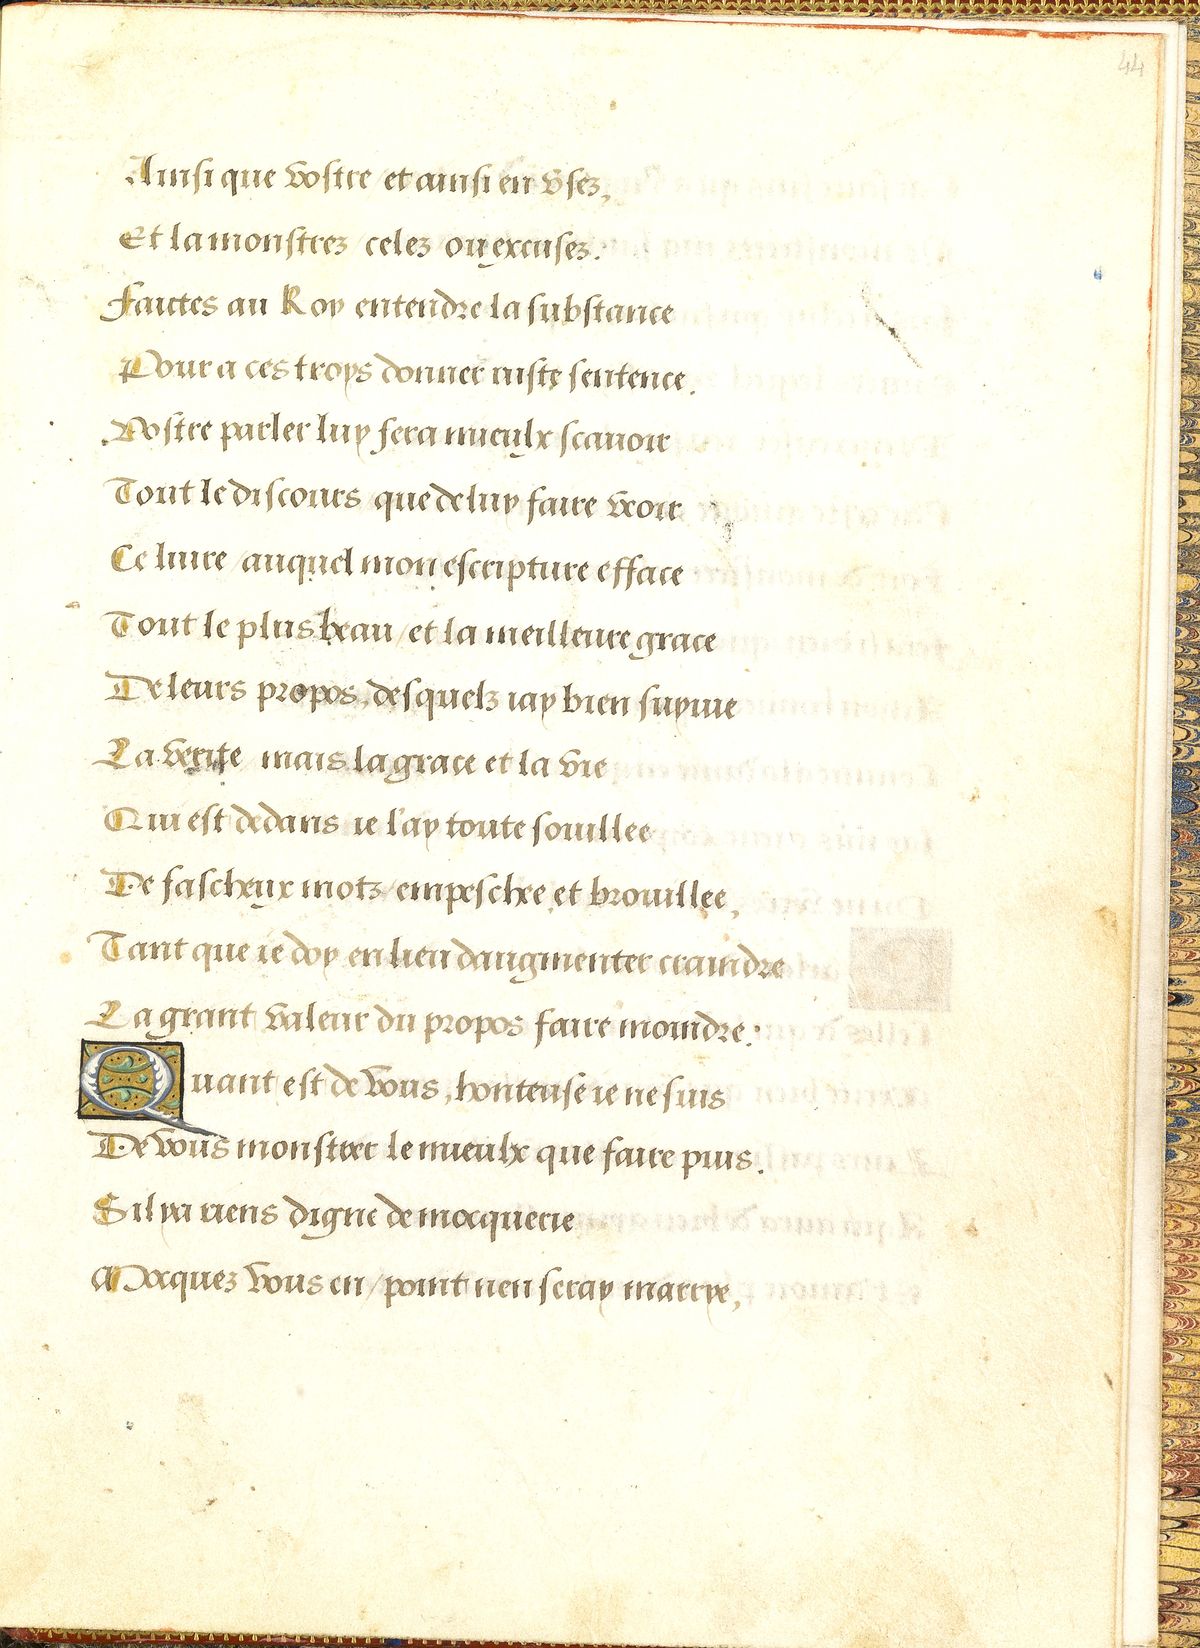 44
Ainsi que vostre / et ainsi en vsez,
Et la monstrez / celez ou excusez.
Faictes au Roy entendre la substance
Pour a ces troys donner iuste sentence.
Vostre parler luy fera mieulx scauoir
Tout le discours que de luy faire veoir
Ce liure / auquel mon escripture efface
Tout le plus beau / et la meilleure grace
De leurs propos, desquelz iay bien suyuie
La verite mais la grace et la vie
Qui est dedans ie l'ay toute souillee
De fascheux motz / empeschee et brouillee,
Tant que ie doy en lieu daugmenter craindre
La grant valeur du propos faire moindre.
Quant est de vous, honteuse ie ne suis
De vous monstrer le mieulx que faire puis.
Sil ya riens digne de mocquerie
Mocquez vous en / point nen seray marrye,